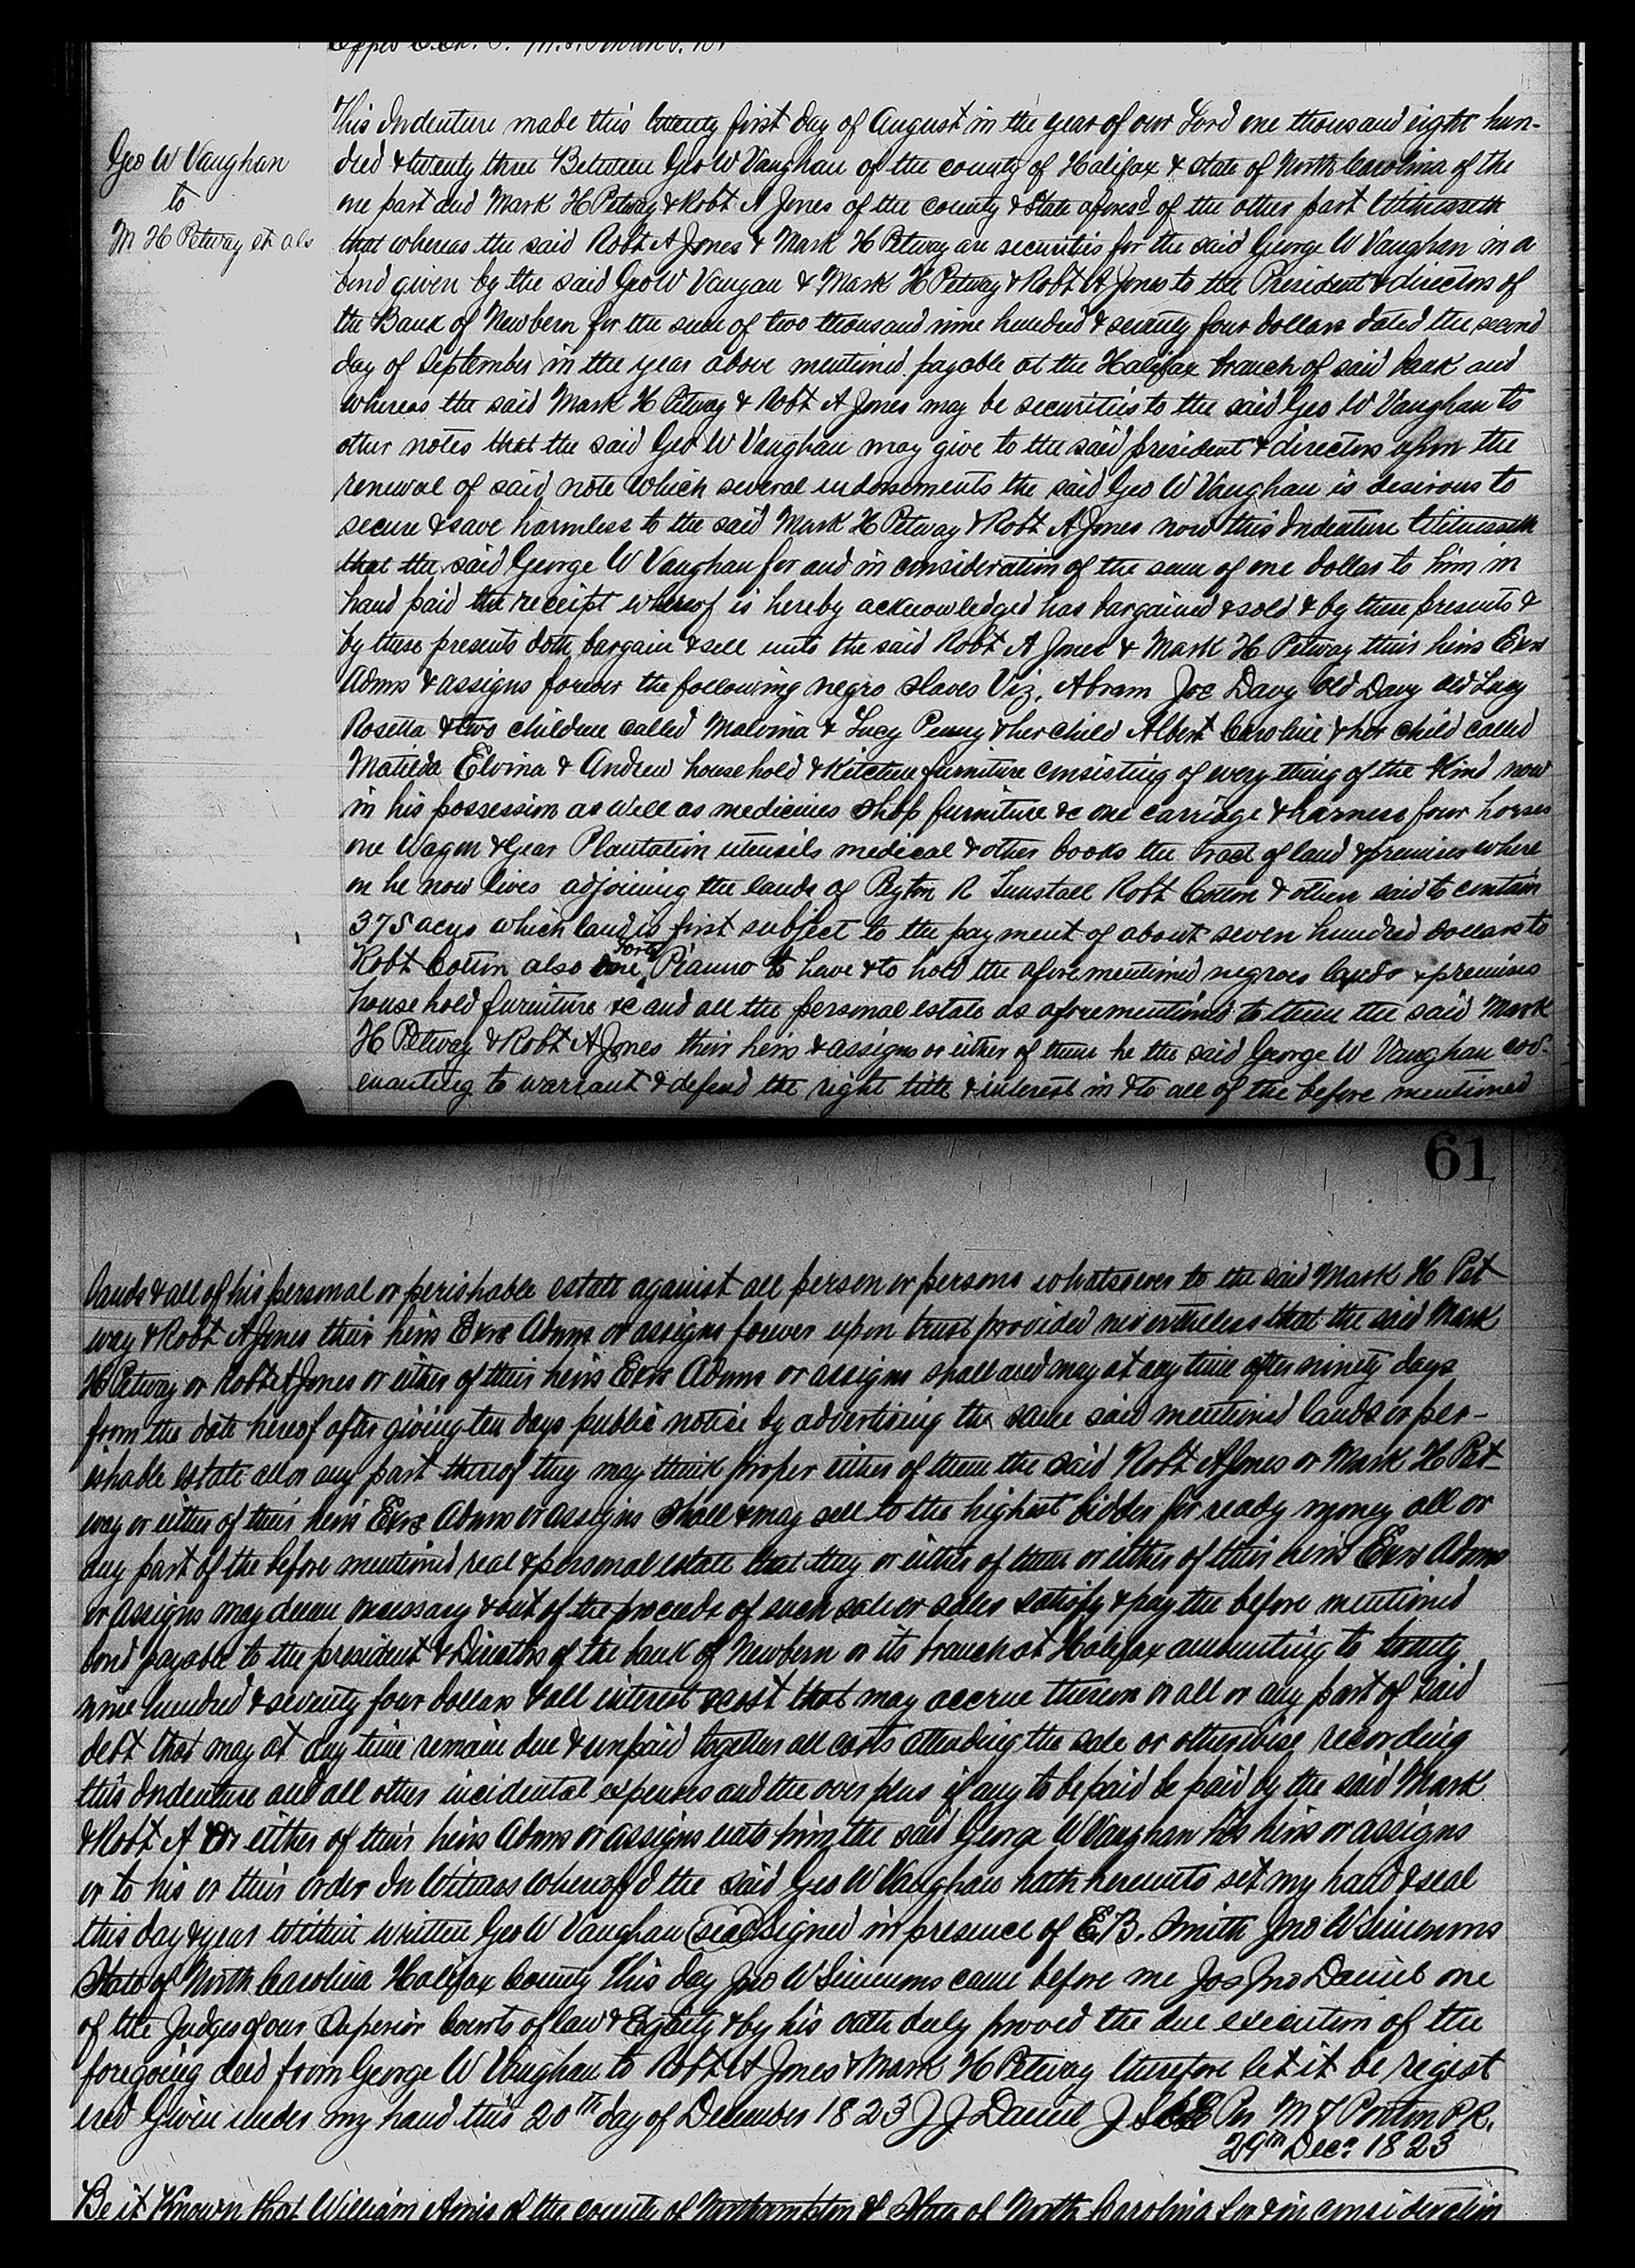 This Indenture made this twenty first day of August in the year of our Lord one thousand eight hun-
Geo W Vaughan
to
M H Petway et als
dred & twenty three Between Geo W Vaughan of the county of Halifax & state of North Carolina of the
one part and Mark H Petway & Robt A Jones of the county & State aforesd of the other part Witnesseth
that whereas the said Robt A Jones & Mark H Petway are securities for the said George W Vaughan in a
bond given by the said Geo W Vaugan & Mark H Petway & Robt A Jones to the President & directors of
the Bank of Newbern for the sum of two thousand nine hundred & seventy four dollars dated the second
day of September in the year above mentioned payable at the Halifax branch of said bank and
whereas the said Mark H Petway & Robt A Jones may be securities to the said Geo W Vaughan to
other notes that the said Geo W Vaughan may give to the said president & directors upon the
renewal of said note which several endorsements the said Geo W Vaughan is desirous to
secure & save harmless to the said Mark H Petway & Robt A Jones now this Indenture Witnesseth
that the said George W Vaughan for and in consideration of the sum of one dollar to him in
hand paid the receipt whereof is hereby acknowledged has bargained & sold & by these presents &
by these presents doth bargain & sell unto the said Robt A Jones & Mark H Petway their heirs Exrs
Adms & assigns forever the following negro slaves Viz. Abram Joe Davy Old Davy Old Lucy
Rosetta & two children called Malvina & Lucy Penny & her child Albert Caroline & her child called
Matilda Elvina & Andrew household & Kitchen furniture consisting of every thing of the Kind now
in his possession as well as medicines shop furniture &c one carriage & harness four horses
one Wagon & Gear Plantation utensils medical & other books the tract of land & premises where
on he now lives adjoining the lands of Peyton R Tunstall Robt Cotton & others said to contain
375 acres which land is first subject to the payment of about seven hundred dollars to
Robt Cotton also one forte Pianno to have & to hold the afore mentioned negroes lands & premises
household furniture &c and all the personal estate as aforementioned to them the said Mark
H Petway & Robt A Jones their heirs & assigns or either of them he the said George W Vaughan cov-
enanting to warrant & defend the right title & interest in & to all of the before mentioned
61
lands & all of his personal or perishable estate against all person or persons whatsoever to the said Mark H Pet
way & Robt A Jones their heirs Exrs Adms or assigns forever upon trust provided nevertheless that the said Mark
H Petway or Robt A Jones or either of their heirs Exrs Adms or assigns shall and may at any time after ninety days
from the date hereof after giving ten days public notice by advertising the same said mentioned lands or per-
ishable estate all or any part thereof they may think proper either of them the said Robt A Jones or Mark H Pet-
way or either of their heirs Exrs Adms or assigns shall & may sell to the highest bidder for ready money all or
any part of the before mentioned real & personal estate that they or either of them or either of their heirs Exrs Adms
or assigns may deem necessary & out of the proceeds of such sale or sales satisfy & pay the before mentioned
bond payable to the president & Directors of the bank of Newbern or its branch at Halifax amounting to twenty
nine hundred & seventy four dollars & all interest & cost that may accrue thereon or all or any part of said
debt that may at any time remain due & unpaid together all costs attending the sale or otherwise recording
this Indenture and all other incidental expenses and the over plus if any to be paid be paid by the said Mark
& Robt A Or either of their heirs Adms or assigns unto him the said George W Vaughan his heirs or assigns
or to his or their order In Witness Whereof I the said Geo W Vaughan hath hereunto set my hand & seal
this day & year within written Geo W Vaughan (seal) signed in presence of E.B. Smith Jno W Simmons
State of North Carolina Halifax County This day Jno W Simmons came before me Jos Jno Daniel one
of the Judges of our Superior Courts of law & Equity & by his oath duly proved the due execution of the
foregoing deed from George W Vaughan to Robt A Jones & Mark H Petway therefore let it be regist
ered Given under my hand this 20th day of December 1823 J J Daniel J Per M T Ponton P.R.
29th Decr 1823
Be it Known that William Amis of the county of Northampton & State of North Carolina for & in consideration